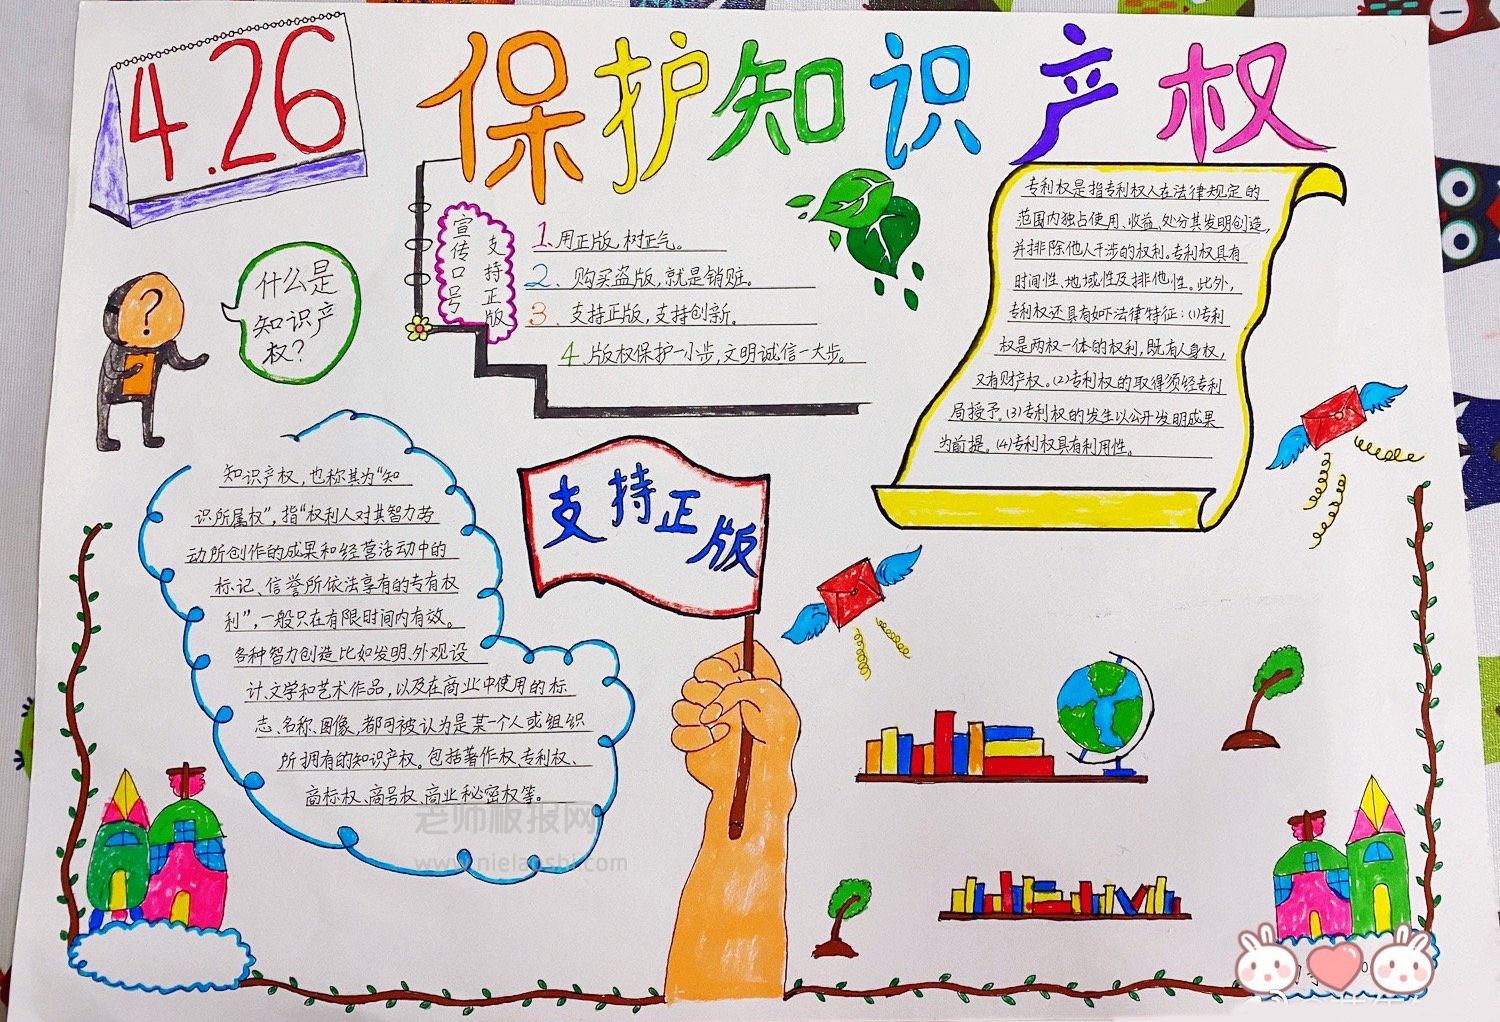 4.26
保护知识产权
宣传口号
支持正版
1、用正版,树正气。
2、购买盗版,就是销赃。
3、支持正版,支持创新。
4、版权保护一小步,文明诚信一大步。
什么是
知识产
权?
专利权是指专利权人在法律规定的
范围内独占使用、收益、处分其发明创造,
并排除他人干涉的权利。专利权具有
时间性、地域性及排他性。此外,
专利权还具有如下法律特征:(1)专利
权是两权一体的权利,既有人身权,
又有财产权。(2)专利权的取得须经专利
局授予。(3)专利权的发生以公开发明成果
为前提。(4)专利权具有利用性。
知识产权,也称其为“知
识所属权”,指“权利人对其智力劳
动所创作的成果和经营活动中的
标记、信誉所依法享有的专有权
利”,一般只在有限时间内有效。
各种智力创造比如发明、外观设
计、文学和艺术作品,以及在商业中使用的标
志、名称、图像,都可被认为是某一个人或组织
所拥有的知识产权。包括著作权、专利权、
商标权、商号权、商业秘密权等。
支持正版
老师板报网
www.nielaoshi.com